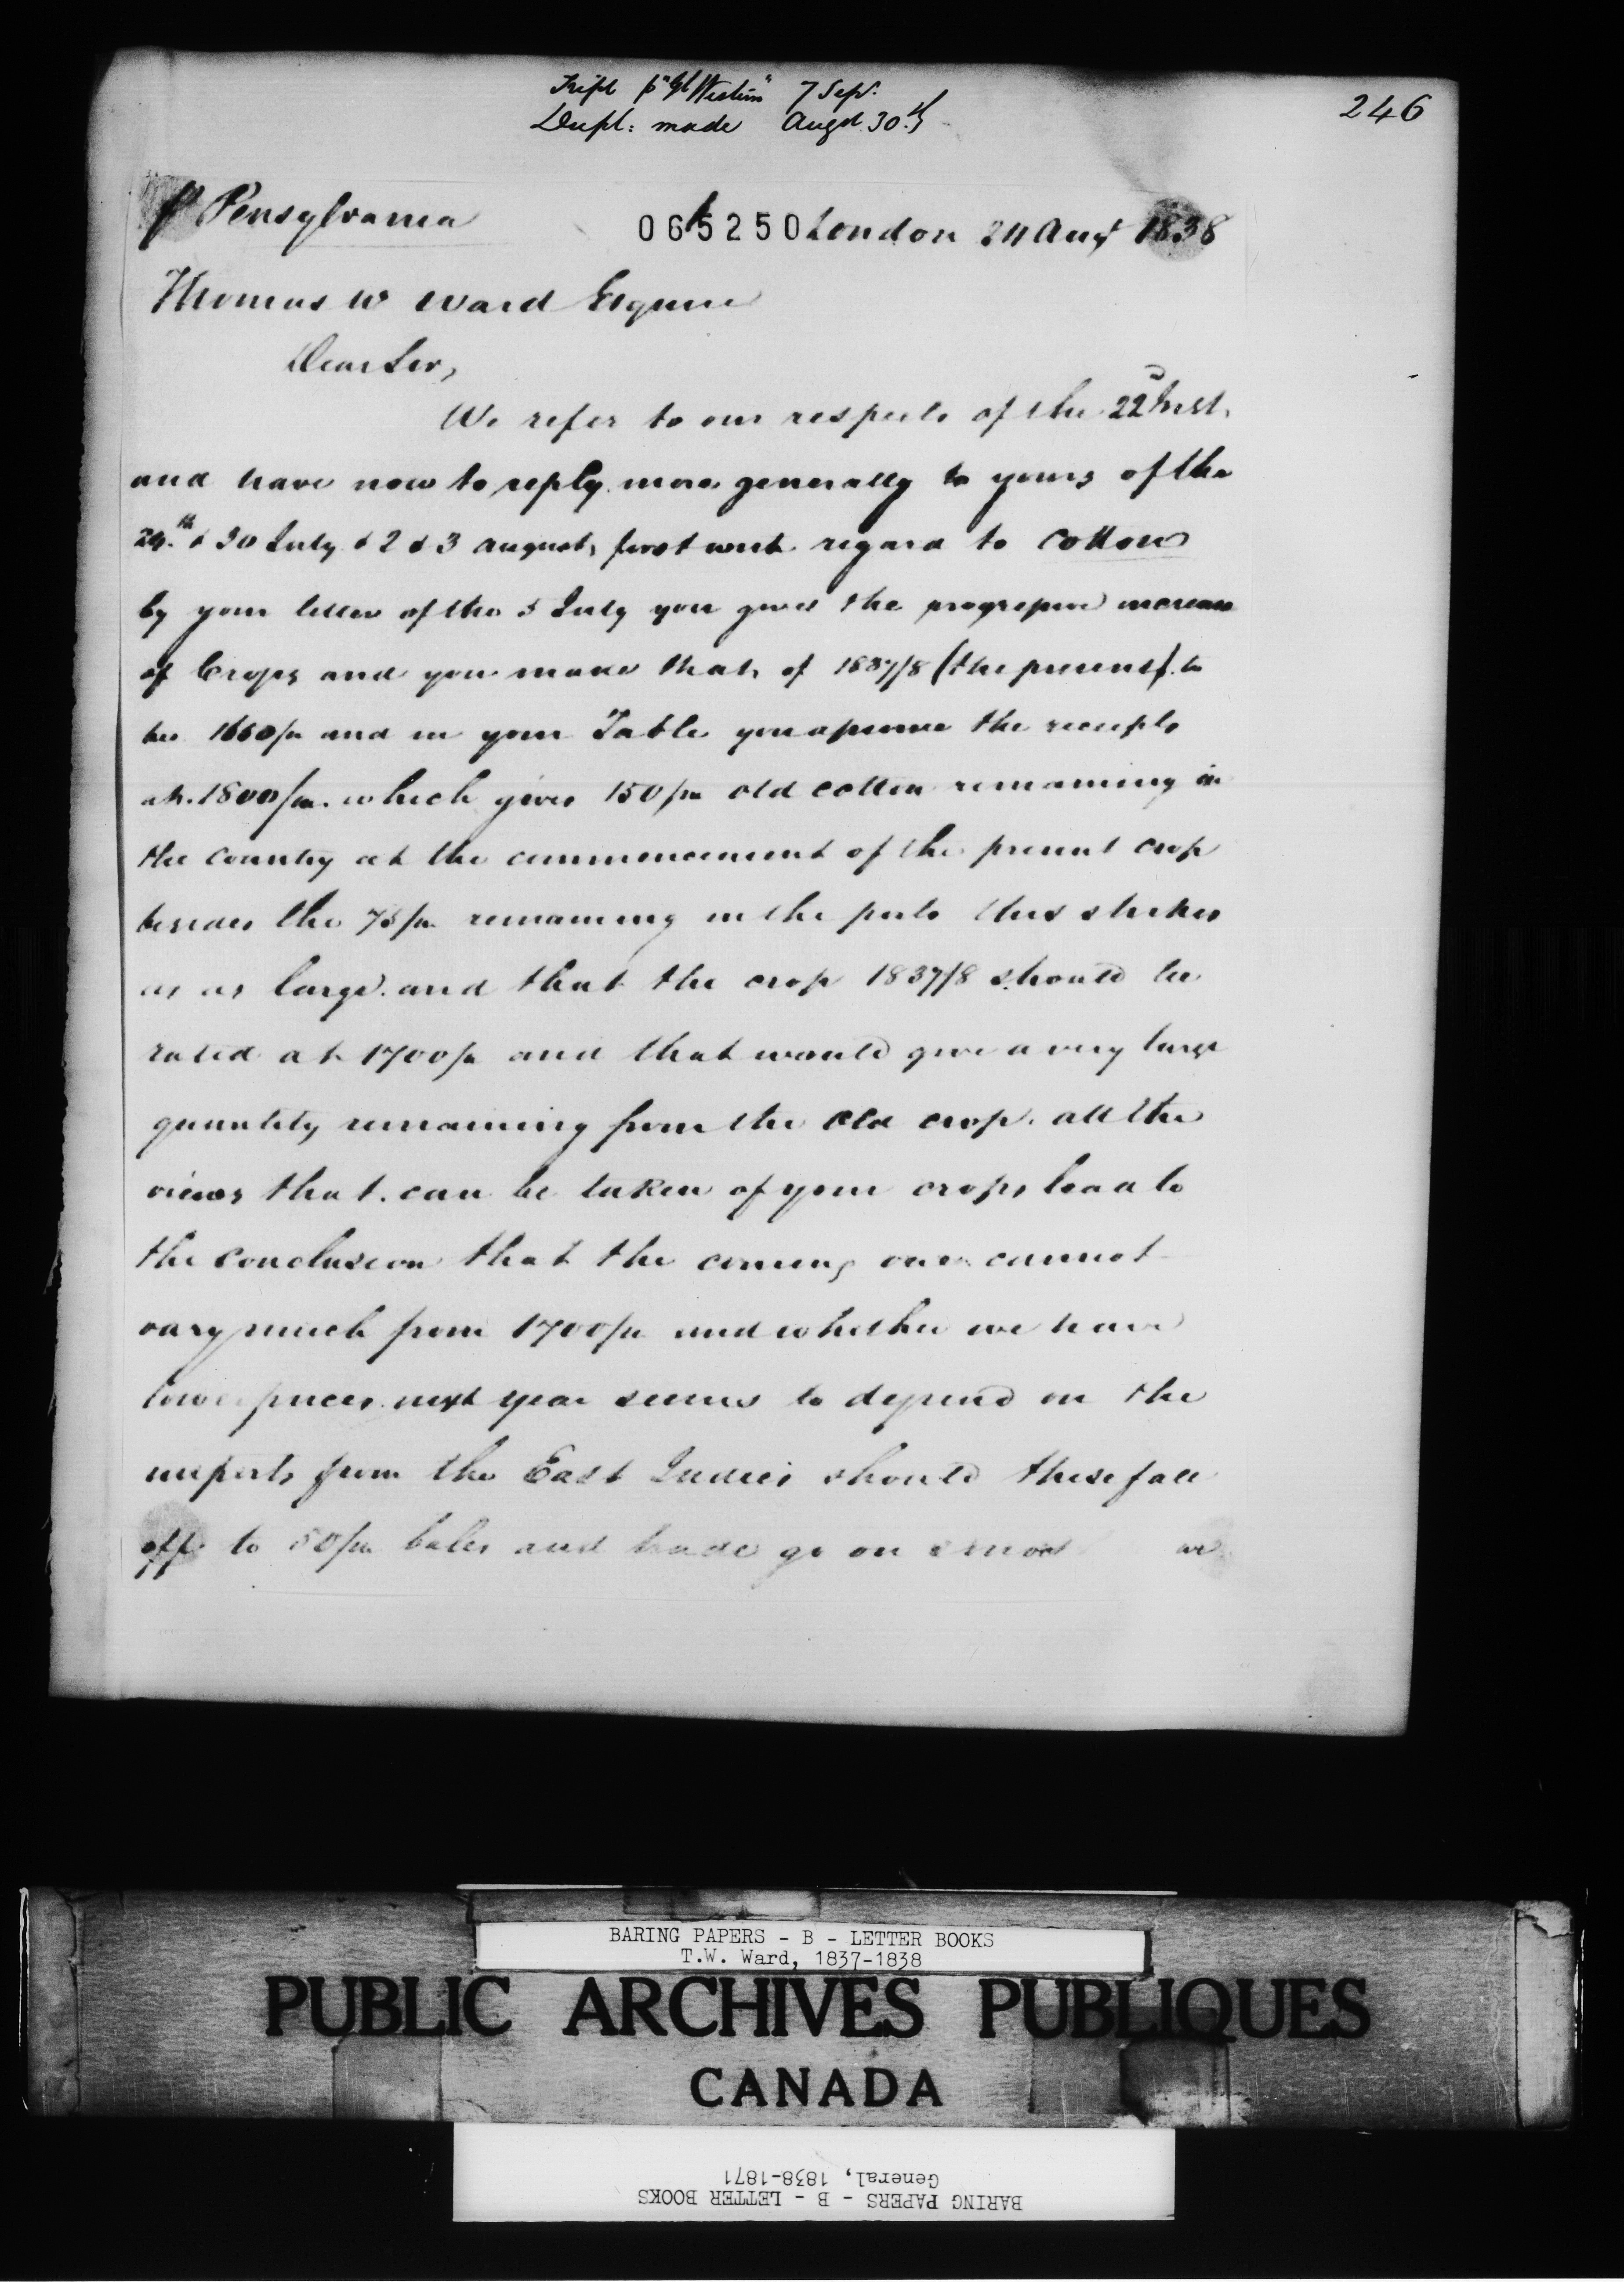 Tripl p "Gt Western" 7 Sepr.
Dupl: made Augst 30th
246
p Pensylvania
065250 London 24 Augt 1838
Thomas W Ward Esquire
Dear Sir,
We refer to our respects of the 22d Inst.
and have now to reply more generally to yours of the
24th & 30 July & 2 & 3 August, first with regard to Cotton
by your letter of the 5 July you gives the progressive increase
of Crops and you make that of 1837/8 (the present) to
be 1650/m and in your Table you assume the receipts
at 1800/m. which gives 150/m old cotton remaining in
the country at the commencement of the present crop
besides the 75/m remaining in the ports this strikes
us as large. and that the crop 1837/8 should be
rated at 1700/m and that would give a very large
quantity remaining from the old crop. all the
views that can be taken of your crops lead to
the conclusion that the coming one cannot
vary much from 1700/m and whether we have
lower prices next year seems to depend on the
imports from the East Indies should these fall
off to 50/m bales and trade go on we
BARING PAPERS - B - LETTER BOOKS
T.W. Ward, 1837-1838
PUBLIC ARCHIVES PUBLIQUES
CANADA
BARING PAPERS - B - LETTER BOOKS
General, 1838-1871